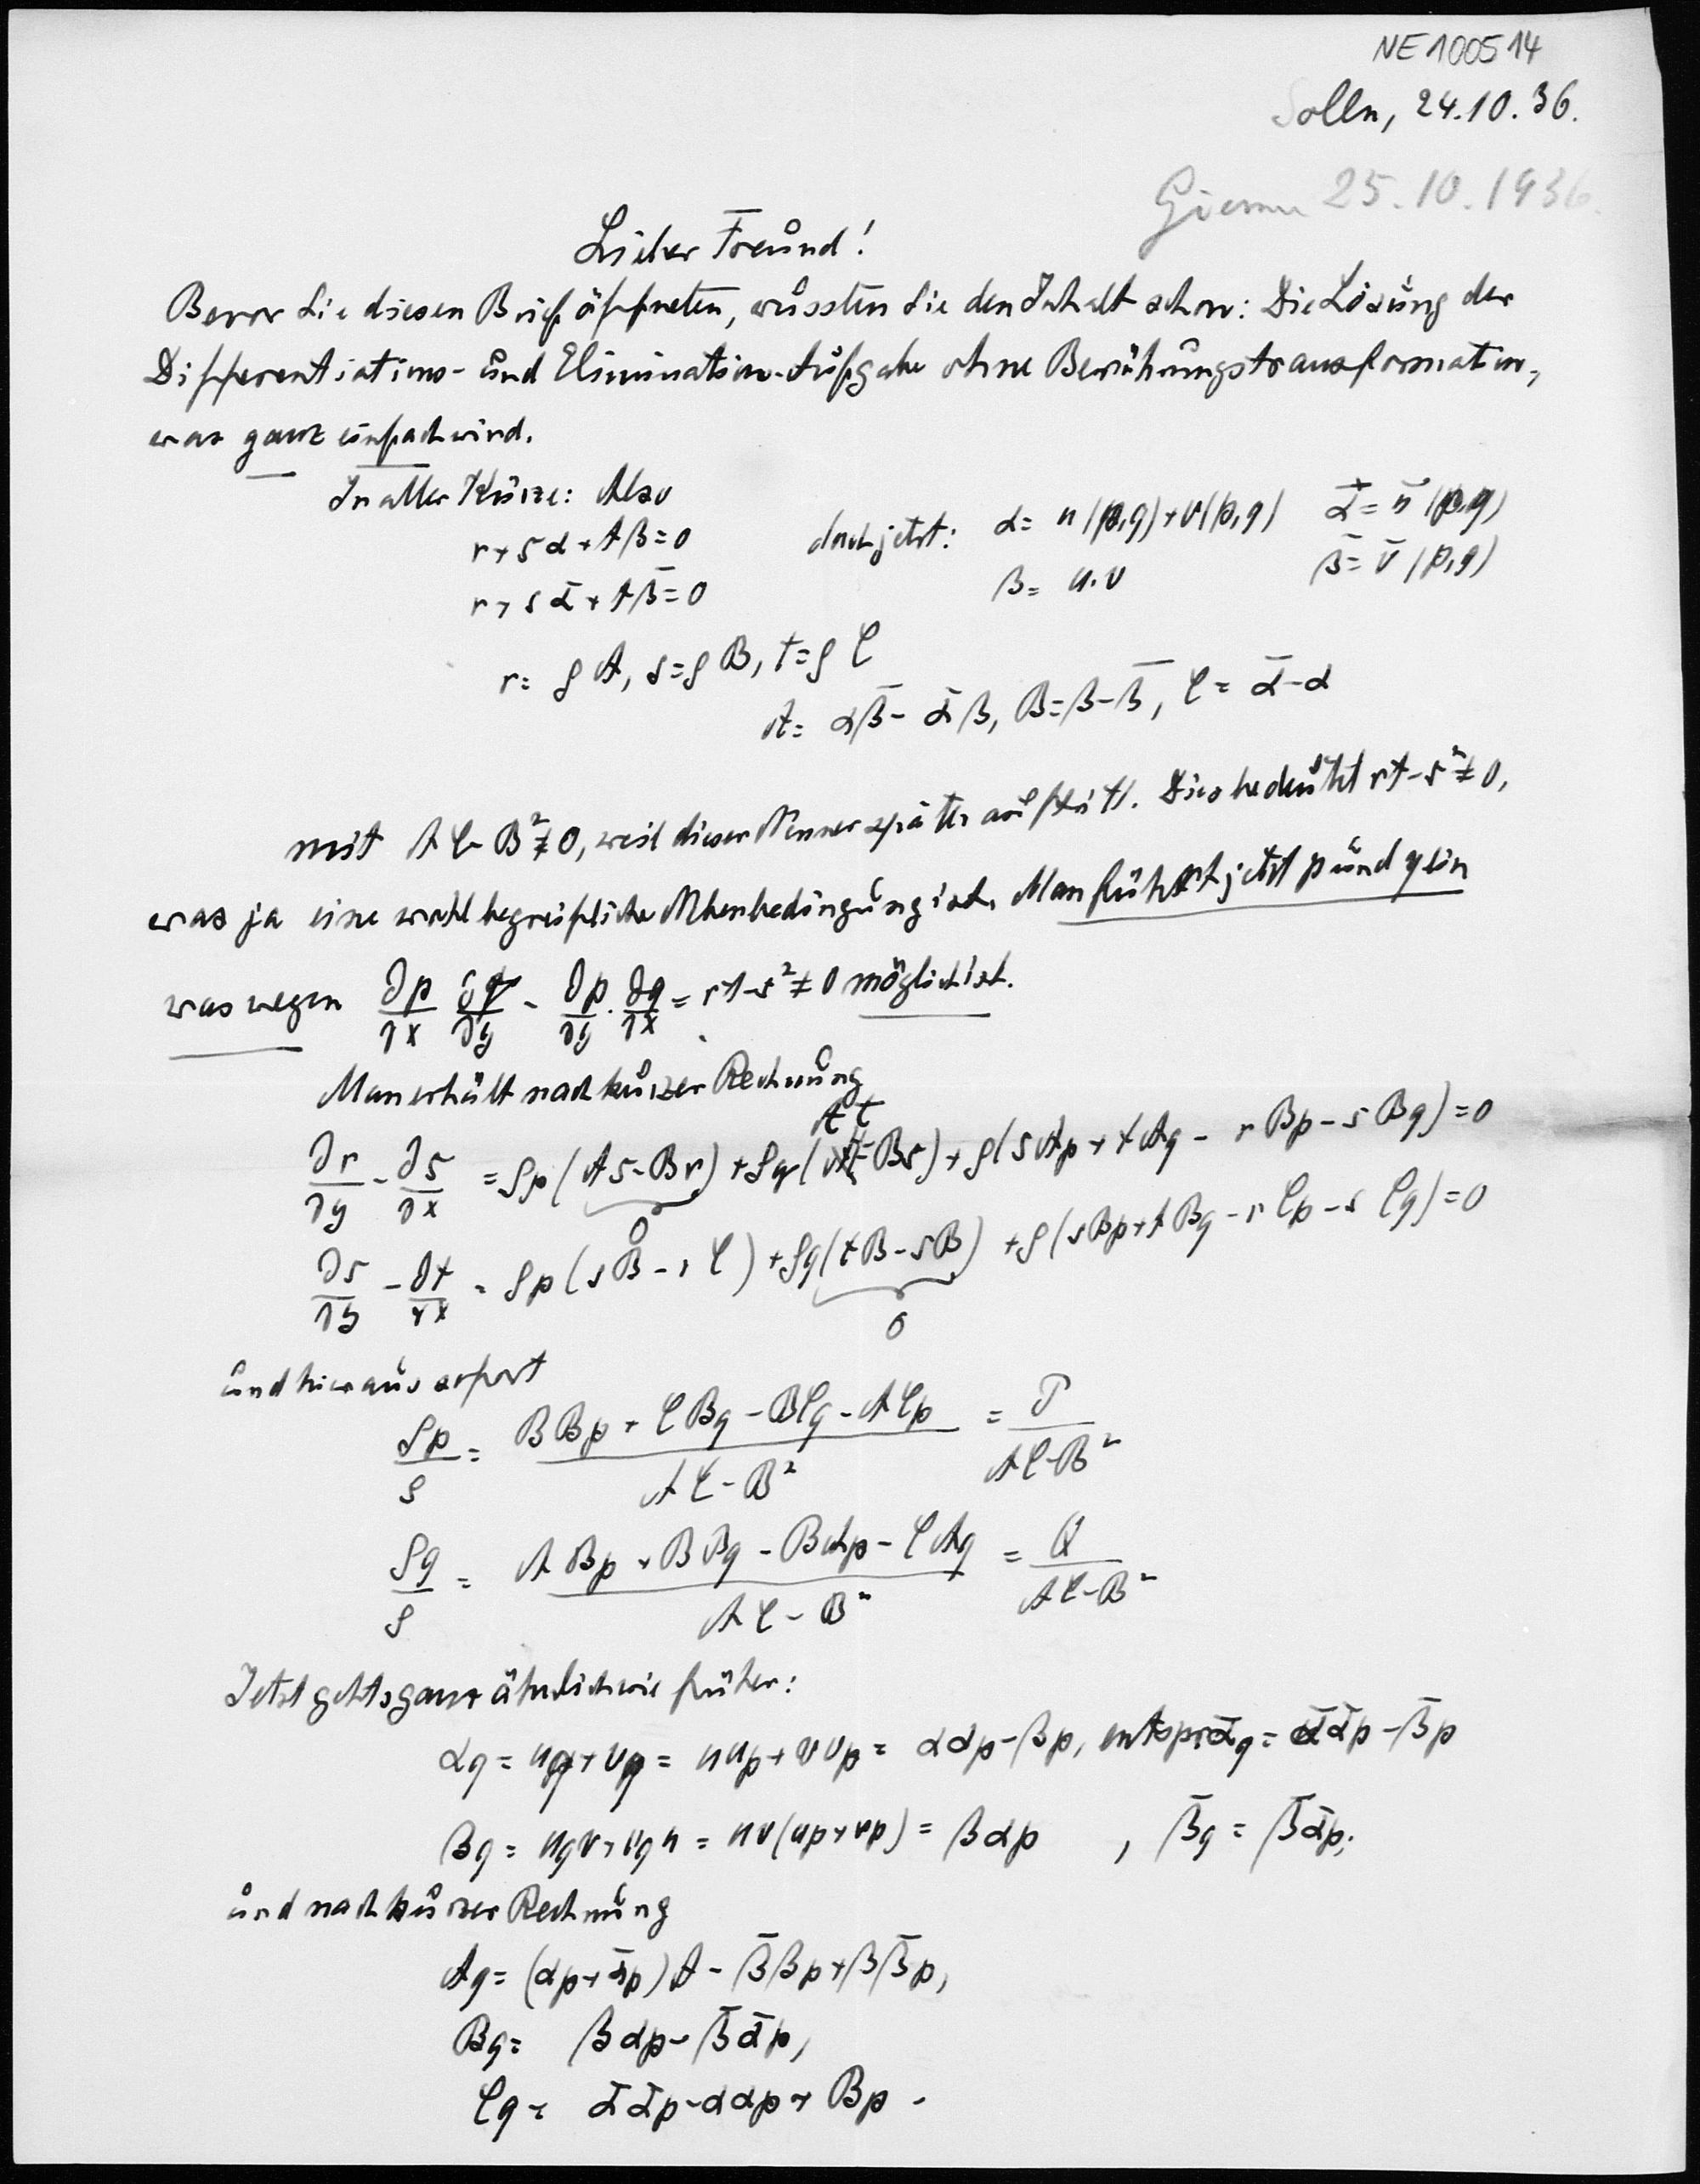 NE 100514
Solln, 24.10.36.
25.10.1936.
Lieber Freund!
Bevor Sie diesen Brief öffneten, wussten Sie den Inhalt schon: Die Lösung der
Differentiations- und Elimination-Aufgabe ohne Berührungstransformation,
was ganz einfach wird.
In aller Kürze: Also
r+sα+tβ=0 doch jetzt: α= u(p,q)+v(p,q) ᾱ= ū(p,q)
r+sᾱ+tβ̄=0 β= u.v β̄= v̄(p,q)
r= ρA, s=ρB, t=ρC
A= αβ̄-ᾱβ, B=β-β̄, C= ᾱ-α
mit AC-B²≠0, weil dieser Nenner später auftritt. Dies bedeutet rt-s²≠0,
was ja eine wohl begreifliche Nebenbedingung ist. Man führt jetzt p und q ein
was wegen ∂p/∂x ∂q/∂y - ∂p/∂y . ∂q/∂x = rt-s²≠0 möglich ist.
Man erhält nach kurzer Rechnung
At
∂r/∂y - ∂s/∂x = ρp(As-Br)+ρq( -Bs)+ρ(sAp+tAq-rBp-sBq)=0
0
∂s/∂y - ∂t/∂x = ρp(sB-rC)+ρq(tB-sB)+ρ(sBp+tBq-rCp-sCq)=0
0
und hieraus sofort
ρp/ρ = BBp+CBq-BCq-ACp / AC-B² = P / AC-B²
ρq/ρ = ABp+BBq-BAp-CAq / AC-B² = Q / AC-B²
Jetzt gehts ganz ähnlich wie früher:
αq = uq+vq = uup+vvp = ααp-βp, entspr ᾱq= ᾱᾱp-β̄p
βq = uqv+vqu = uv(up+vp) = βαp , β̄q = β̄ᾱp;
und nach kurzer Rechnung
Aq= (αp+ᾱp)A-β̄βp+ββ̄p,
Bq= βαp-β̄ᾱp,
Cq= ᾱᾱp-ααp+Bp.